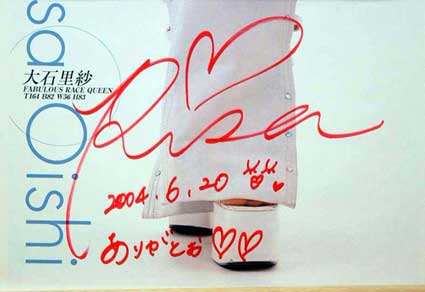 sa Oishi
大石里紗
FABULOUS RACE QUEEN
T164 B82 W56 H83
Risa
2004.6.20
ありがとお